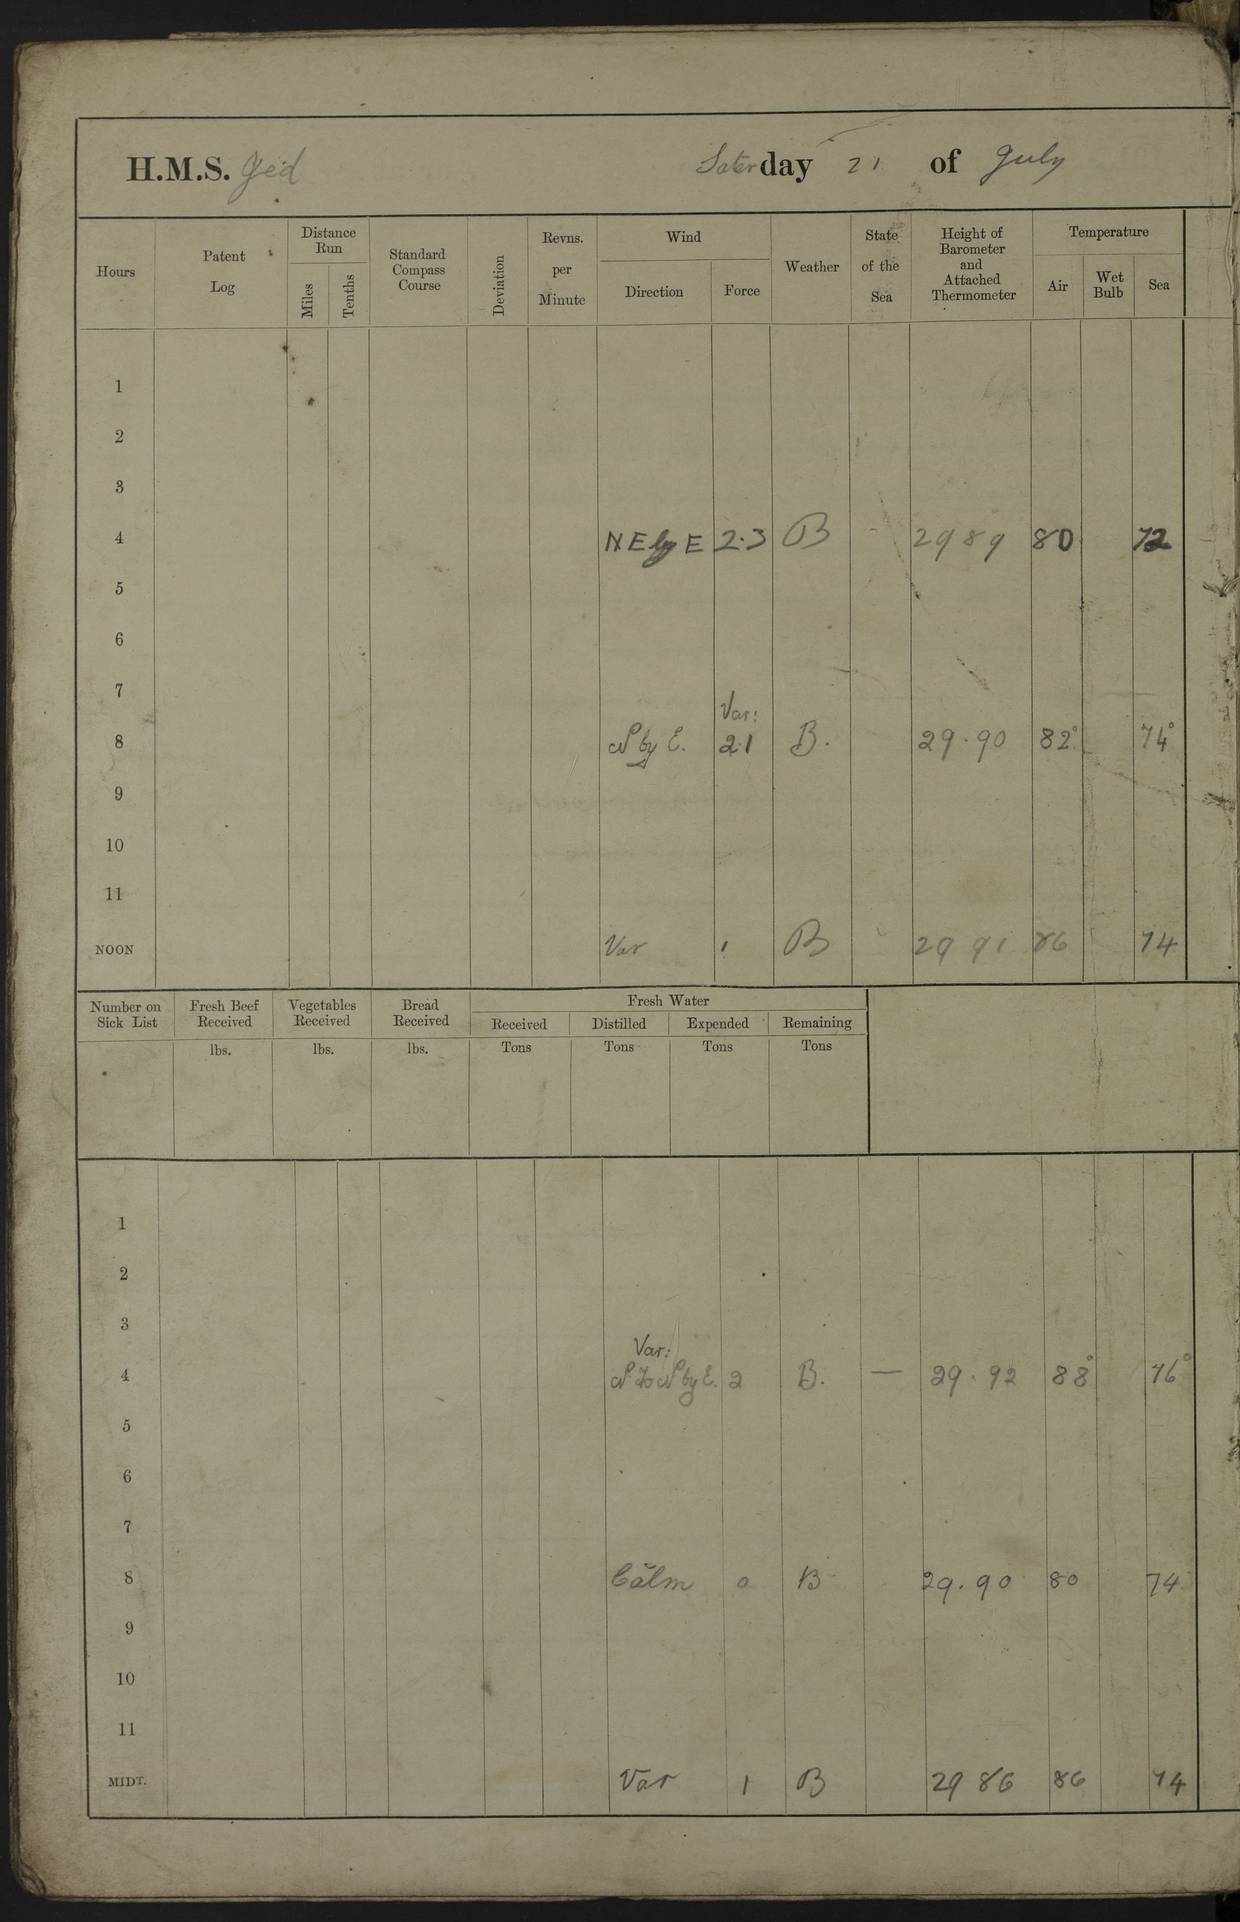 H.M.S. Ged Saterday 21 of July
Hours Patent Log Distance Run Miles Tenths Standard Compass Course Deviation Revns. per Minute Wind Direction Force Weather State of the Sea Height of Barometer and Attached Thermometer Temperature Air Wet Bulb Sea
1
2
3
4 NE by E 2.3 B - 29 89 80 72
5
6
7
Var:
8 N by E. 2.1 B. 29.90 82° 74°
9
10
11
NOON Var 1 B 29 91 86 74
Number on Sick List Fresh Beef Received Vegetables Received Bread Received Fresh Water
Received Distilled Expended Remaining
lbs. lbs. lbs. Tons Tons Tons Tons
1
2
3
Var:
4 N to N by E. 2 B. — 29.92 88° 76°
5
6
7
8 Calm 0 B 29.90 80 74
9
10
11
MIDT. Var 1 B 29 86 86 74